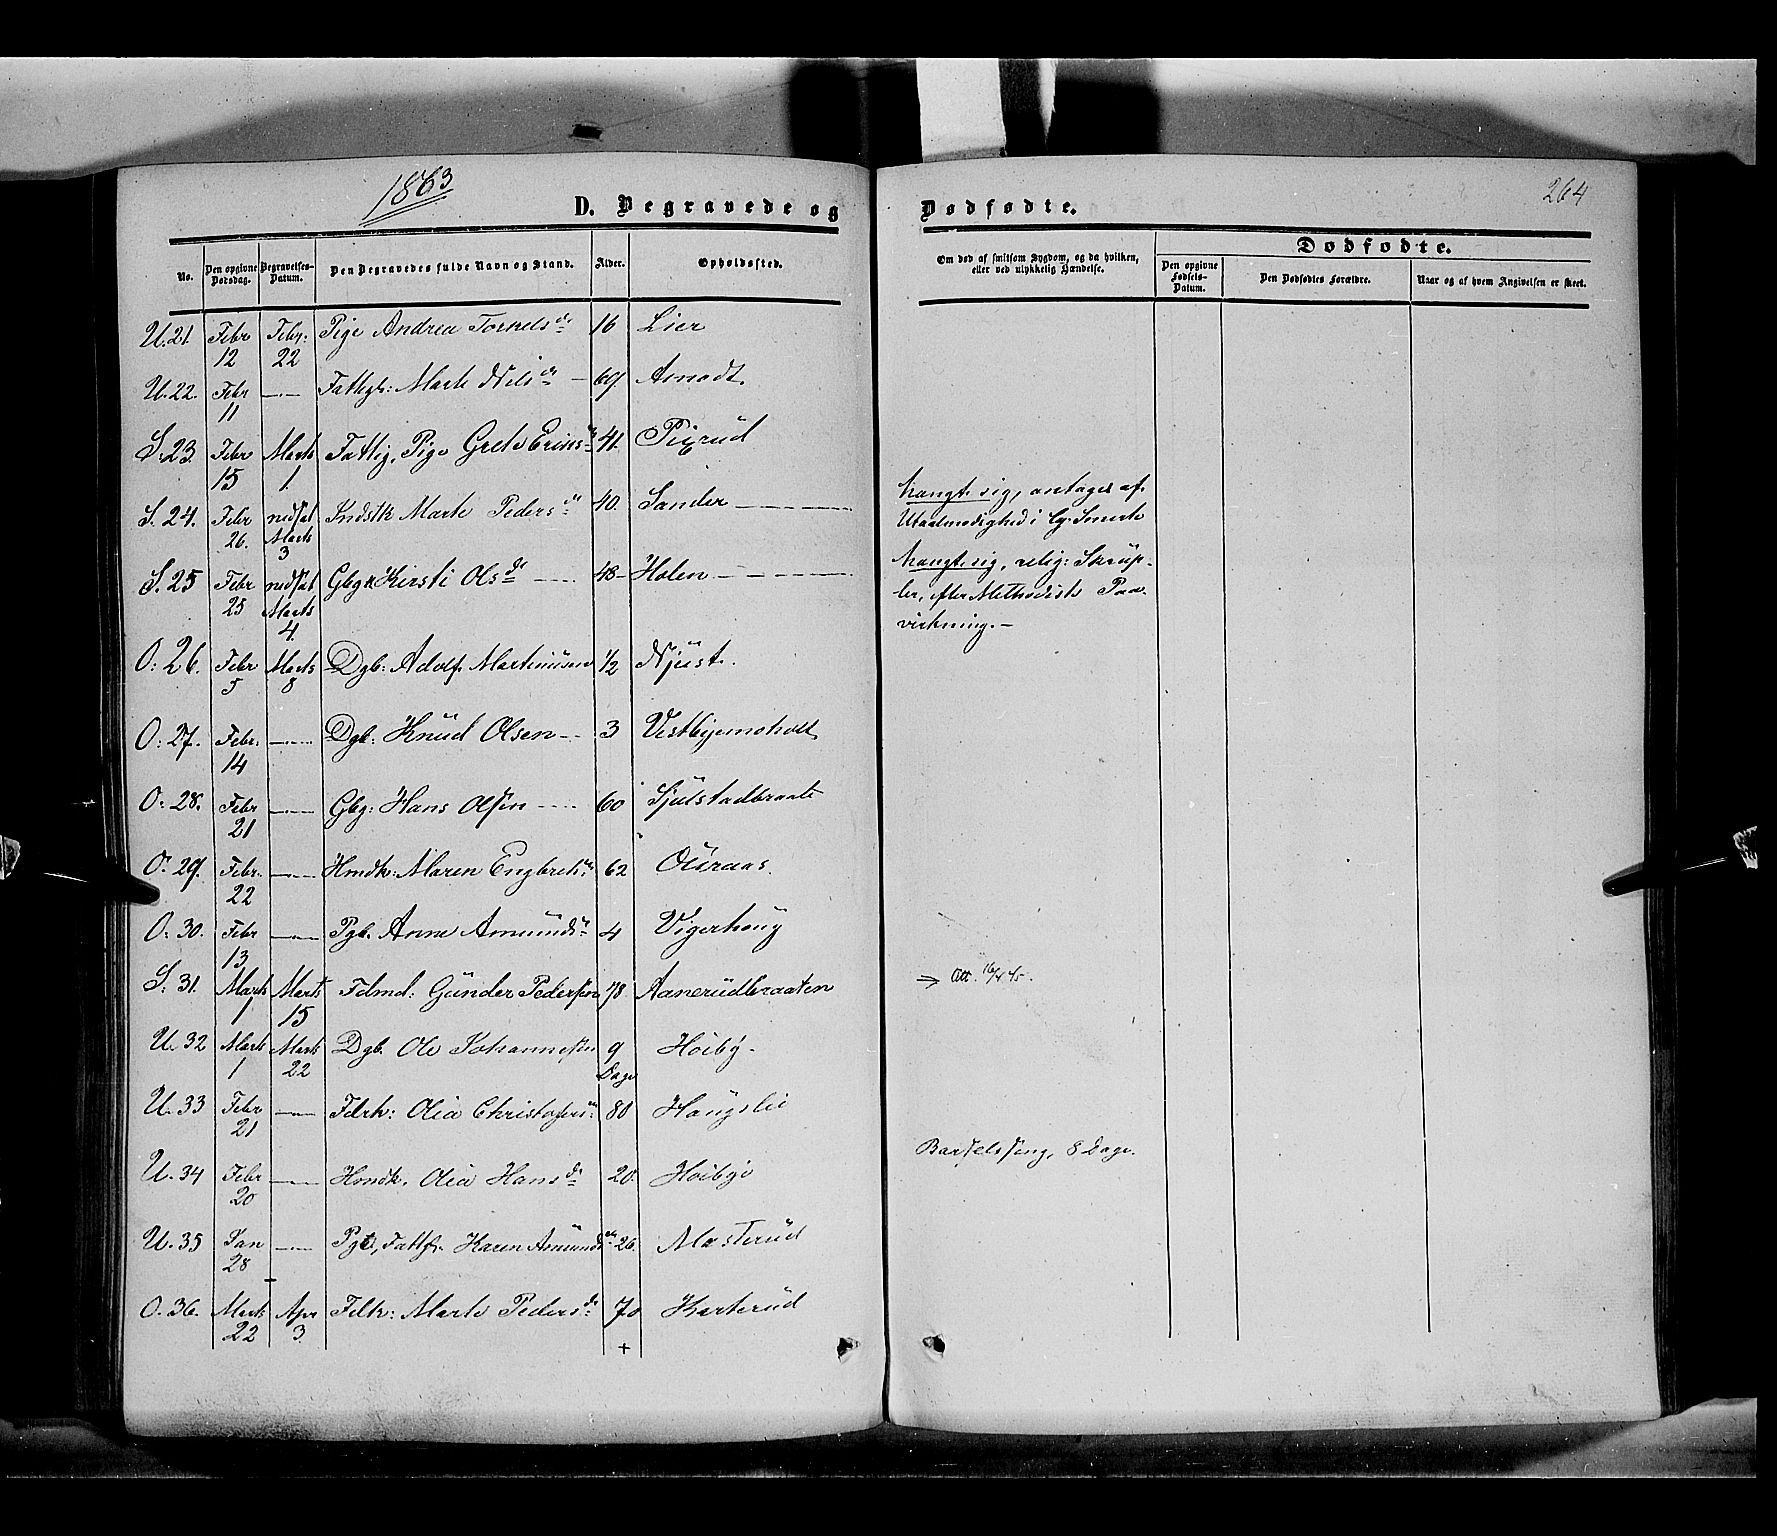 1863
264
D. Begravede og Dødfødte.
No.
Den opgivne Dødsdag.
Begravelses-Datum.
Den Begravedes fulde Navn og Stand.
Alder.
Opholdssted.
Om død af smitsom Sygdom, og da hvilken, eller ved ulykkelig Hændelse.
Dødfødte.
Den opgivne Fødsels-Datum.
Den Dødfødtes Forældre.
Naar og af hvem Angivelsen er skeet.
U. 21. Febr 12 Febr: 22 Pige Andrea Torkelsdr 16 Lier
U. 22. Febr 11 —"— Fattigl: Marte Nilsdr — 69
S. 23. Febr 15 Marts 1. Fattig, Pige Grete 41.
S. 24. Febr 26. nedsat Marts 3 Indstk Marte Pedersdr 40. Sander — Hængt sig, antages af
Utaalmodighed i Smerte
S. 25 Febr 25 nedsat Marts 4. Gbgk Kirsti Olsdr 48 — Holen — Hængt sig, relig: Skrup-
ler, efter Methodist Paa-
virkning. —
O: 26. Febr 5 Marts 8 Dgb: Adolf Martinusen 1/2 Njust.
O: 27. Febr: 14 —"— Dgb: Knud Olsen — 3
O: 28. Febr 21 —"— Gbg: Hans Olsen 60 Sjulstadbraate
O. 29. Febr. 22 —"— Hmdk: Maren Engbretsdr 62 Ouraas.
O. 30. Febr 13 —"— Pgb. Anne Amundsdr 4 Vigerhoug
S. 31. Marts 1 Marts 15 Fdmd: Gunder Pedersen 78 Aanerudbraaten → Att. 16/4 45.
U. 32 Marts 1 Marts 22 Dgb. Ole Johannesen 9 Dage Høiby
U. 33 Febr 21 —"— Fdrk: Olea Christofersdr 80 Haugslie
U. 34 Febr 20 —"— Hmdk. Olea Hansdr 20. Høibye Barselseng, 8 Dage.
U. 35 Jan 28 —"— Pge, Fattf. Karen Amundsdr 26. Masterud
O. 36. Marts 22 Apr 3. Fdk: Marte Pedersdr 70 Karterud
+